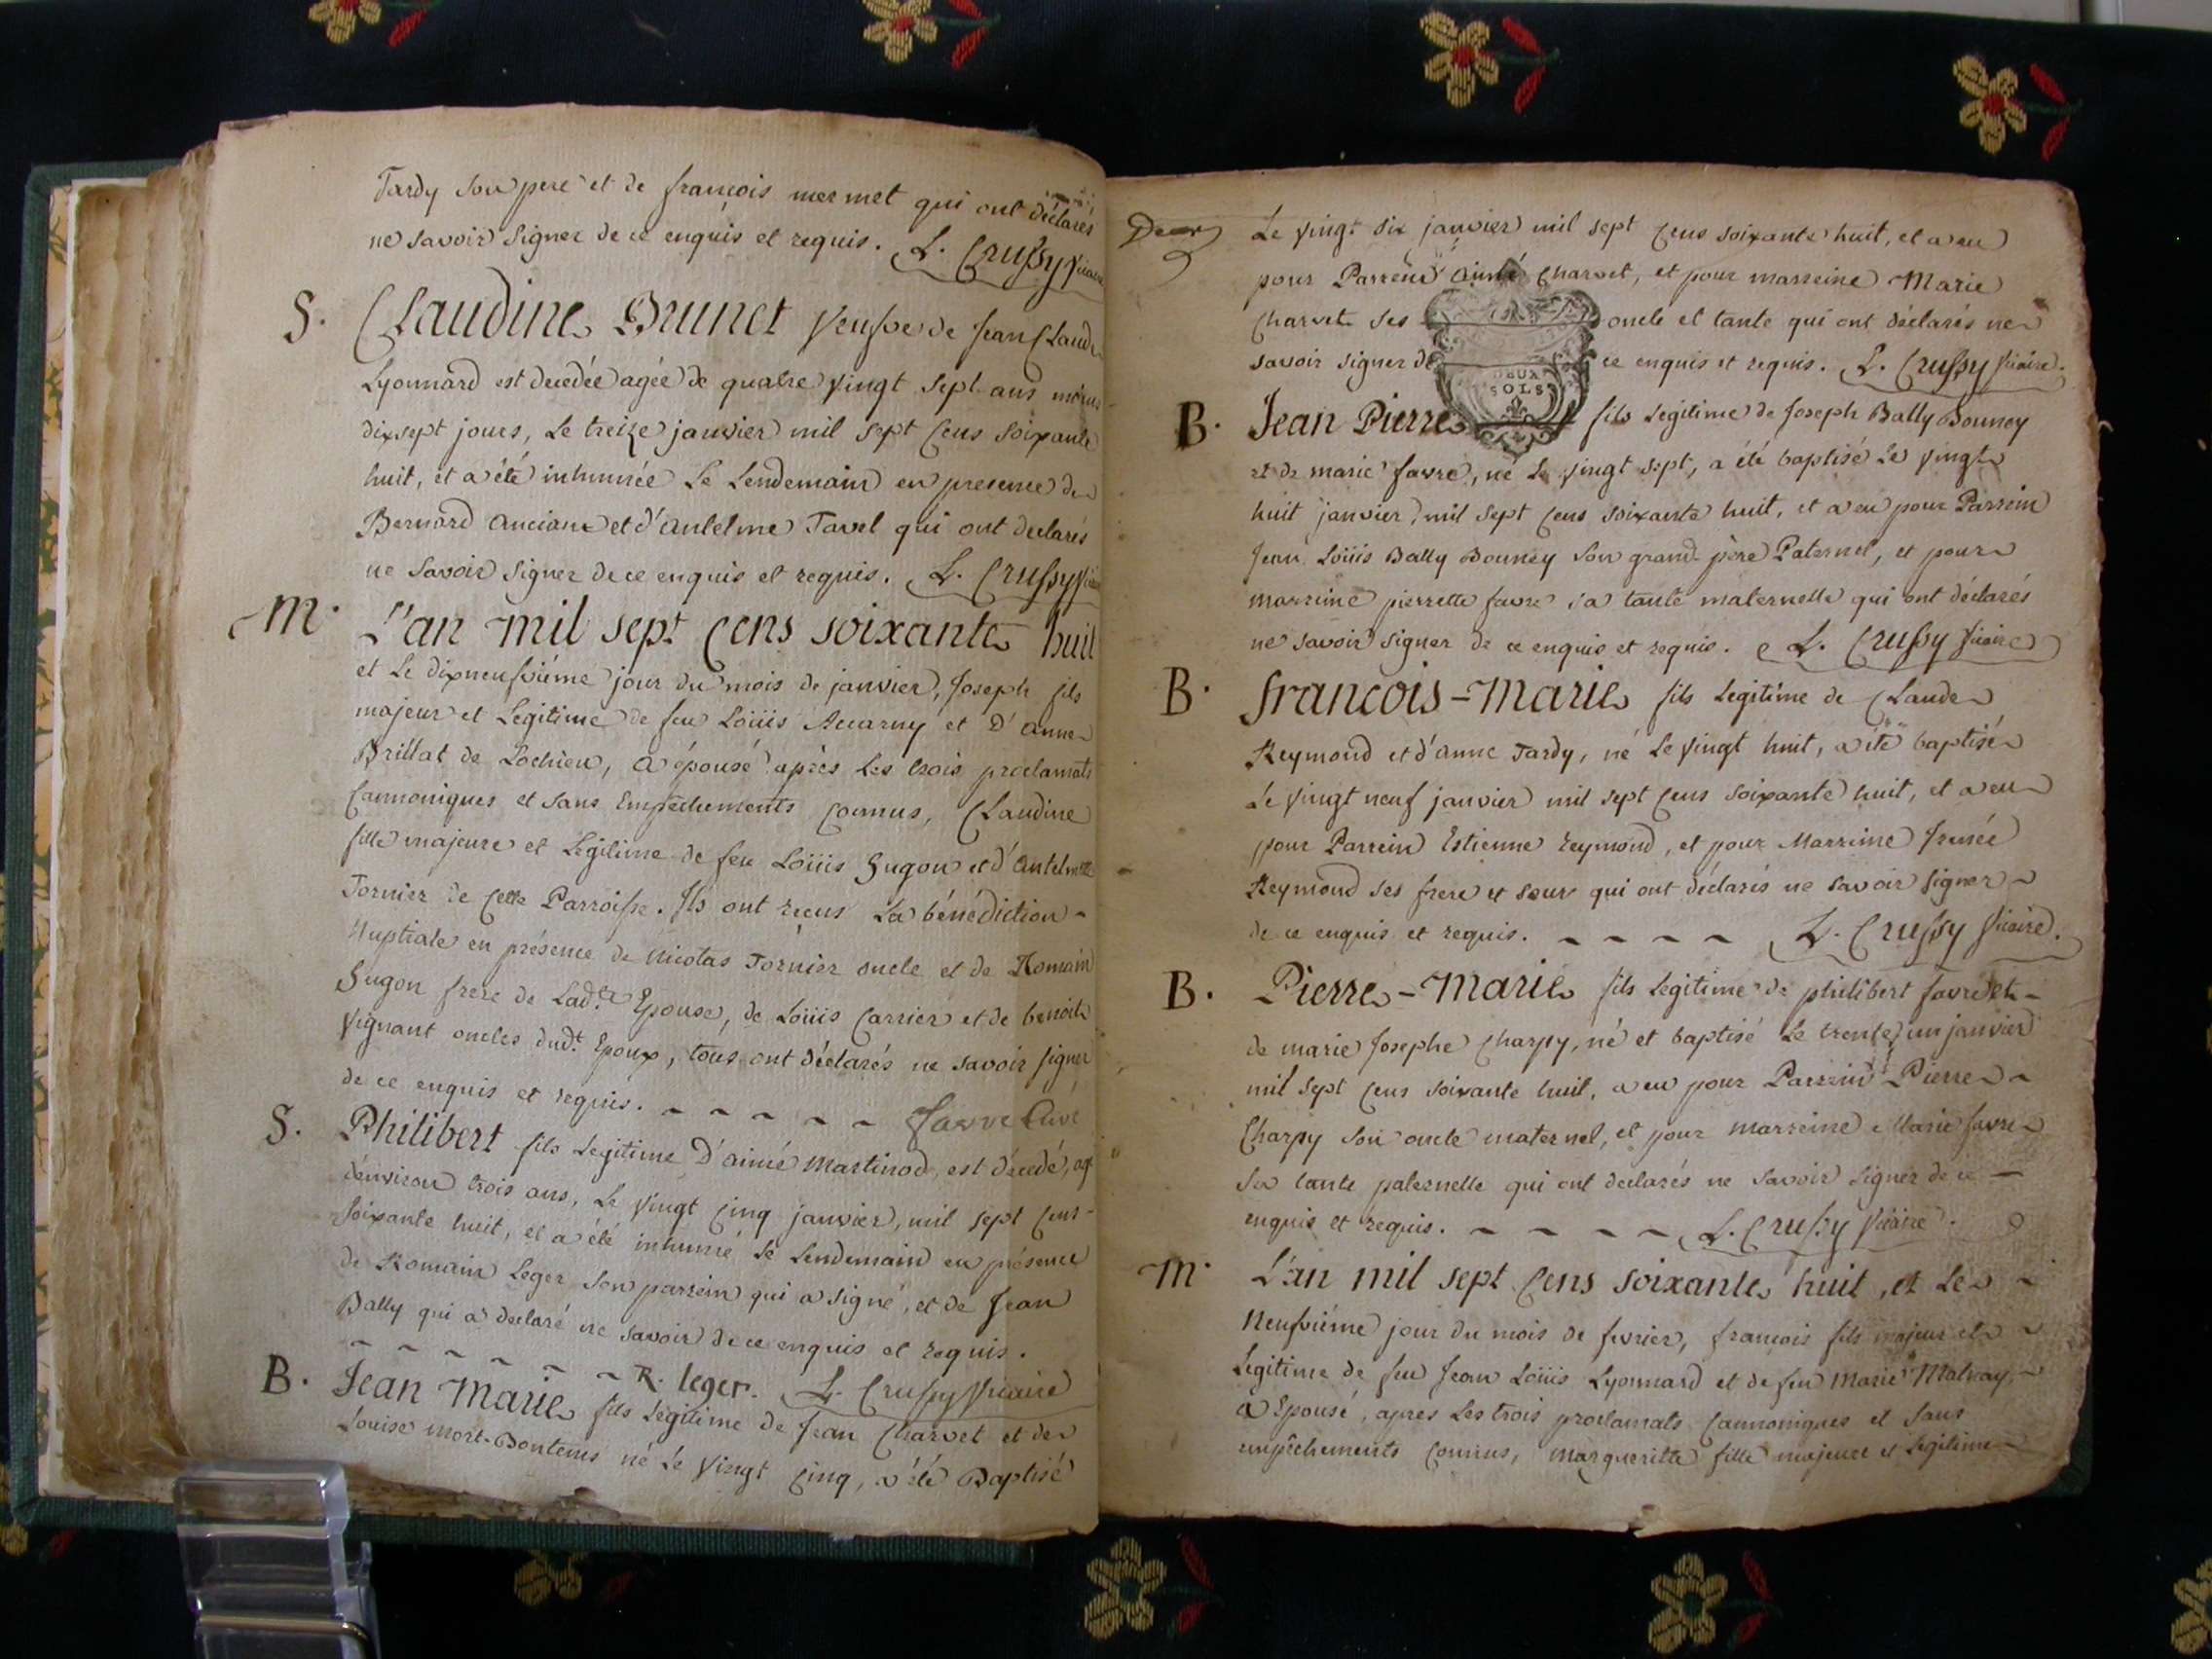 Tardy son pere et de françois mermet qui ont déclarés
ne savoir signer de ce enquis et requis. L. Crussy Vicaire
S. Claudine Brunet Veufve de Jean Claude
Lyonnard est decedée agée de quatre vingt sept ans moins
dix sept jours, Le treize janvier mil sept cens soixante
huit, et a été inhumée Le Lendemain en presence de
Bernard Anciant et d'Antelme Tavel qui ont declarés
ne savoir signer de ce enquis et requis. L. Crussy Vicaire
M. L'an mil sept cens soixante huit
et Le dixneufviéme jour du mois de janvier, Joseph fils
majeur et Legitime de feu Loüis Accarny et D'Anne
Brillat de Lochieu, a épousé après Les trois proclamats
Cannoniques et sans Empêchements connus, Claudine
fille majeure et Légitime de feu Loüis Gugon et d'Antelmette
Tornier de cette Parroisse. Ils ont recus La bénédiction
Nuptiale en présence de Nicolas Tornier oncle et de Romain
Gugon frere de Ladte Epouse, de Loüis Carrier et de benoit
Vignant oncles dudt Epoux, tous ont déclarés ne savoir signer
de ce enquis et requis. ~ ~ ~ ~ ~ Favre Curé
S. Philibert fils Legitime D'aimé Martinod, est décedé, agé
d'environ trois ans, Le vingt cinq janvier, mil sept cens
soixante huit, et a été inhumé Le Lendemain en présence
de Romain Leger son parrein qui a signé, et de Jean
Bally qui a declaré ne savoir de ce enquis et requis.
~ ~ ~ ~ ~ ~ R. leger. L. Crussy Vicaire
B. Jean Marie fils Légitime de Jean Charvet et de
Louise Mort-Bontems né Le vingt cinq, a été Baptisé
Le vingt six janvier mil sept cens soixante huit, et a eu
pour Parrein Aimé Charvet, et pour marreine Marie
Charvet ses oncle et tante qui ont déclarés ne
savoir signer de ce enquis et requis. L. Crussy Vicaire.
DEUX
SOLS
B. Jean Pierre fils Legitime de Joseph Bally Bouney
et de marie favre, né Le vingt sept, a été baptisé Le vingt
huit janvier mil sept cens soixante huit, et a eu pour Parrein
Jean Loüis Bally Bouney son grand père Paternel, et pour
marreine pierrette favre sa tante maternelle qui ont déclarés
ne savoir signer de ce enquis et requis. L. Crussy Vicaire
B. françois-Marie fils Legitime de Claude
Reymond et d'Anne Tardy, né Le vingt huit, a été baptisé
Le vingt neuf janvier mil sept cens soixante huit, et a eu
pour Parrein Estienne Reymond, et pour Marreine
Reymond ses frere et sœur qui ont déclarés ne savoir signer
de ce enquis et requis. ~ ~ ~ ~ L. Crussy Vicaire.
B. Pierre-Marie fils Legitime de philibert favre et
de marie Josephe Charpy, né et baptisé Le trente un janvier
mil sept cens soixante huit, a eu pour Parrein Pierre
Charpy son oncle maternel, et pour marreine Marie favre
sa tante paternelle qui ont declarés ne savoir signer de ce
enquis et requis. ~ ~ ~ ~ L. Crussy Vicaire.
M. L'an mil sept cens soixante huit, et Le
Neufviéme jour du mois de fevrier, françois fils majeur et
Legitime de feu Jean Loüis Lyonnard et de feu Marie
a Epousé, apres Les trois proclamats Cannoniques et sans
empêchements connus, Margueritte fille majeure et Legitime